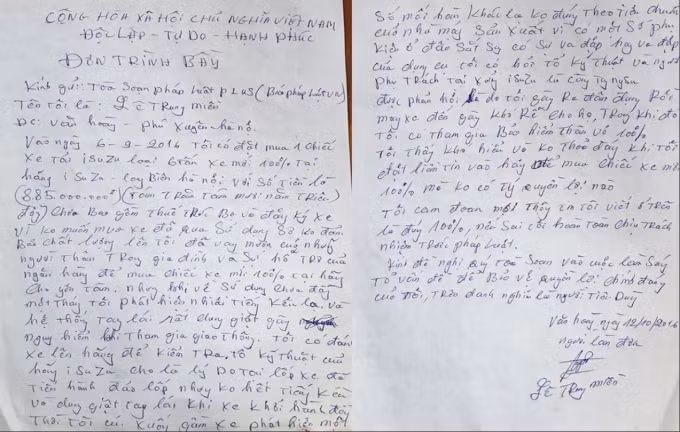 CỘNG HÒA XÃ HỘI CHỦ NGHĨA VIỆT NAM
ĐỘC LẬP - TỰ DO - HẠNH PHÚC
ĐƠN TRÌNH BẦY
Kính gửi: Tòa Soạn pháp luật PLUS (Báo pháp luật VN)
Tên tôi là: Lê Trọng miền
ĐC: Văn hoàng - Phú Xuyên - hà nội.
Vào ngày 6-9-2016 tôi có đặt mua 1 chiếc
Xe tải iSuZu loại 6 tấn xe mới 100% Tại
hãng iSuZu - long Biên hà nội với Số Tiền là
(885.000.000đ) (Tám Trăm Tám mươi năm Triệu
đồng) Chưa Bao gồm Thuế Trước Bạ và đăng ký Xe
vì ko muốn mua xe đã qua Sử dụng Sợ ko đảm
Bảo chất lượng lên tôi đã vay mượn cùng những
người Thân Trong gia đình và Sự hỗ Trợ của
ngân hàng để mua chiếc xe mới 100% tại hãng
Cho yên tâm. nhưng khi về Sử dụng Chưa đầy
một Tháng Tôi phát hiện nhiều Tiếng Kêu lạ và
hệ Thống Tay lái rất dung giật gây
nguy hiểm khi Tham gia giao Thông. Tôi có đánh
xe lên hãng để kiểm TRa, Tổ kỹ Thuật của
hãng iSuZu cho là lý Do tại lốp xe đã
Tiến hành đảo lốp nhưng ko hết Tiếng Kêu
và dung giật tay lái khi xe khởi hành
Thời Tôi cúi xuống gầm xe phát hiện một
Số mối hàn khác lạ ko đúng Theo Tiêu chuẩn
của nhà máy Sản Xuất vì có một Số phụ
Kiện ở đầu Sát Si có Sự va đập hay va đập
của dụng cụ tôi có hỏi tổ kỹ Thuật và người
phụ TRách Tại Xưởng iSuZu là
được phản hồi là do tôi gây Ra đâm đụng Rồi
mang xe đến gây khó Rễ Cho họ, TRong khi đó
Tôi có Tham gia Bảo hiểm Thân vỏ 100%
Tôi Thấy khó hiểu vô ko Thỏa đáng khi Tôi
đặt liềm Tin vào hãng để mua chiếc xe mới
100% mà ko có tý quyền lợi nào
Tôi cam đoan mọi Thông tin tôi viết ở trên
là đúng 100%, nếu Sai tôi hoàn Toàn Chịu TRách
nhiệm TRước pháp Luật.
Kính đề nghị quý Tòa Soạn vào cuộc làm Sáng
Tỏ vấn đề để Bảo vệ quyền lợi chính đáng
của Tôi, TRên danh nghĩa là người Tiêu Dùng
Văn hoàng ngày 12/10/2016
người làm đơn
Lê TRọng miền